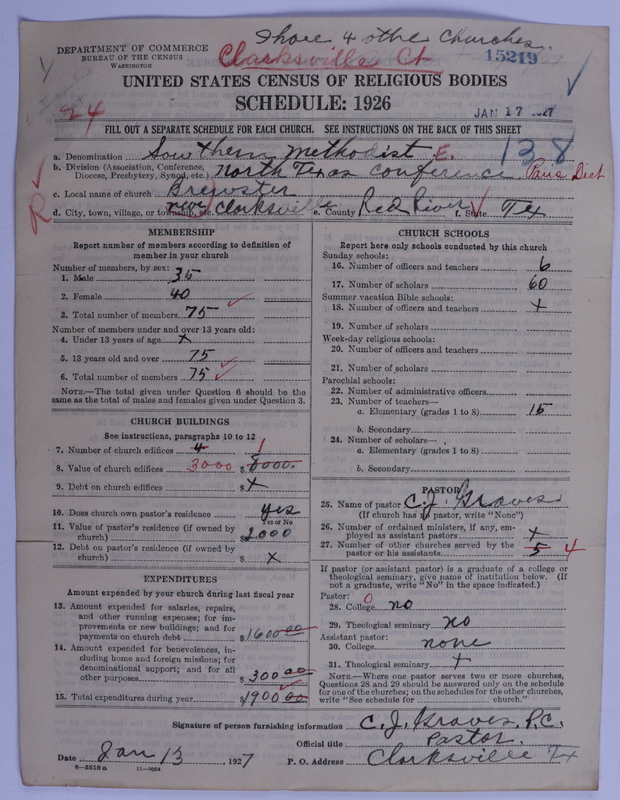 Shove 4 other Churches.
DEPARTMENT OF COMMERCE
BUREAU OF THE CENSUS
WASHINGTON
Clarksville Ct
15219
UNITED STATES CENSUS OF RELIGIOUS BODIES
SCHEDULE: 1926
24
JAN 17 1927
FILL OUT A SEPARATE SCHEDULE FOR EACH CHURCH. SEE INSTRUCTIONS ON THE BACK OF THIS SHEET
138
a. Denomination Sowthern Methodist E.
b. Division (Association, Conference, Diocese, Presbytery, Synod, etc.) North Texas Conference Paris Dist
c. Local name of church Brewster
R
d. City, town, village, or township, etc. near Clarksville e. County Red River f. State Tex
MEMBERSHIP
Report number of members according to definition of
member in your church
Number of members, by sex:
1. Male 35
2. Female 40
3. Total number of members 75
Number of members under and over 13 years old:
4. Under 13 years of age x
5. 13 years old and over 75
6. Total number of members 75
NOTE.—The total given under Question 6 should be
same as the total of males and females given under Question 3.
CHURCH BUILDINGS
See instructions, paragraphs 10 to 12
7. Number of church edifices 4 1
8. Value of church edifices 3000 $ 8000.
9. Debt on church edifices $ x
10. Does church own pastor's residence yes
Yes or No
11. Value of pastor's residence (if owned by
church) $ 2000
12. Debt on pastor's residence (if owned by
church) $ x
EXPENDITURES
Amount expended by your church during last fiscal year
13. Amount expended for salaries, repairs,
and other running expenses; for im-
provements or new buildings; and for
payments on church debt $ 1600 00
14. Amount expended for benevolences, in-
cluding home and foreign missions; for
denominational support; and for all
other purposes $ 300 00
15. Total expenditures during year $ 1900 00
CHURCH SCHOOLS
Report here only schools conducted by this church
Sunday schools:
16. Number of officers and teachers 6
17. Number of scholars 60
Summer vacation Bible schools:
18. Number of officers and teachers x
19. Number of scholars
Week-day religious schools:
20. Number of officers and teachers
21. Number of scholars
Parochial schools:
22. Number of administrative officers
23. Number of teachers—
a. Elementary (grades 1 to 8) 15
b. Secondary
24. Number of scholars—
a. Elementary (grades 1 to 8)
b. Secondary
PASTOR
25. Name of pastor C. J. Graves
(If church has no pastor, write "None")
26. Number of ordained ministers, if any, em-
ployed as assistant pastors x
27. Number of other churches served by the
pastor or his assistants 5 4
If pastor (or assistant pastor) is a graduate of a college or
theological seminary, give name of institution below. (If
not a graduate, write "No" in the space indicated.)
Pastor: 0
28. College no
29. Theological seminary no
Assistant pastor:
30. College none
31. Theological seminary x
NOTE.—Where one pastor serves two or more churches,
Questions 28 and 29 should be answered only on the schedule
for one of the churches; on the schedules for the other churches,
write "See schedule for church."
Signature of person furnishing information C. J. Graves, P.C.
Official title Pastor.
Date Jan 13 1927 P. O. Address Clarksville Tx
8—5518 a 11—9034